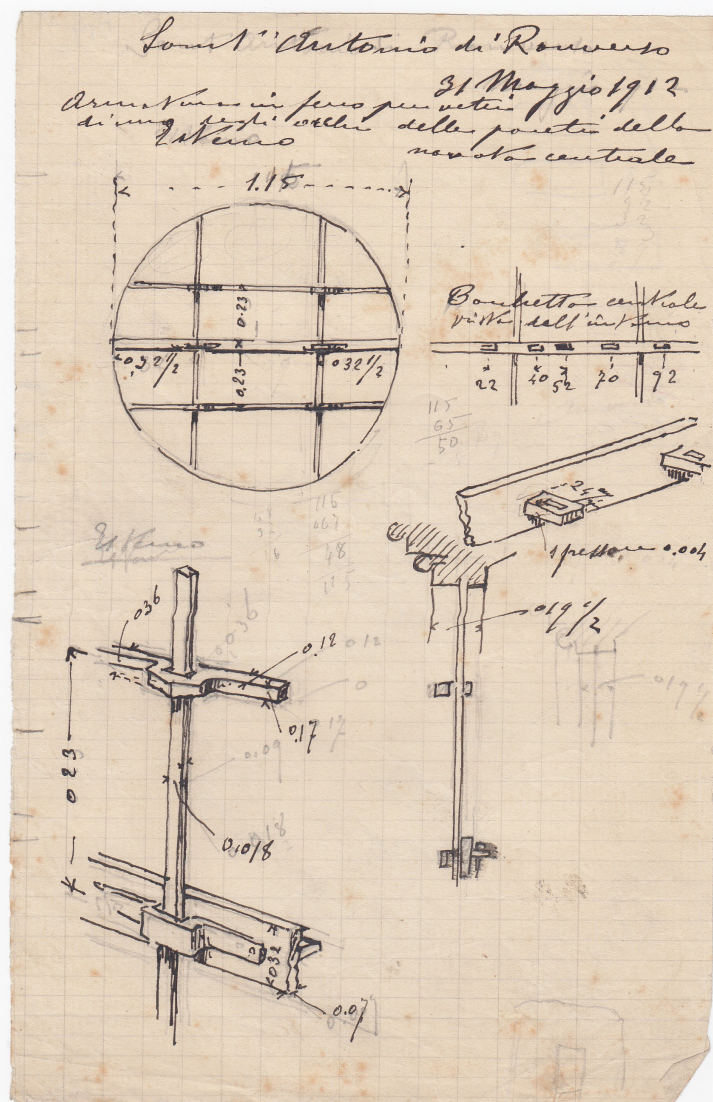 Sant' Antonio di Ranverso
31 Maggio 1912
Armatura in ferro per vetri
di uno degli occhi delle pareti della
Esterno
navata centrale
1.15
0.23
0.32 1/2
032 1/2
0.23
Bacchetta centrale
vista dall'interno
22 40 52 70 92
115
65
50
24
spessore 0.004
Esterno
019 1/2
036
0.12
0.17
023
0.018
032
0.07